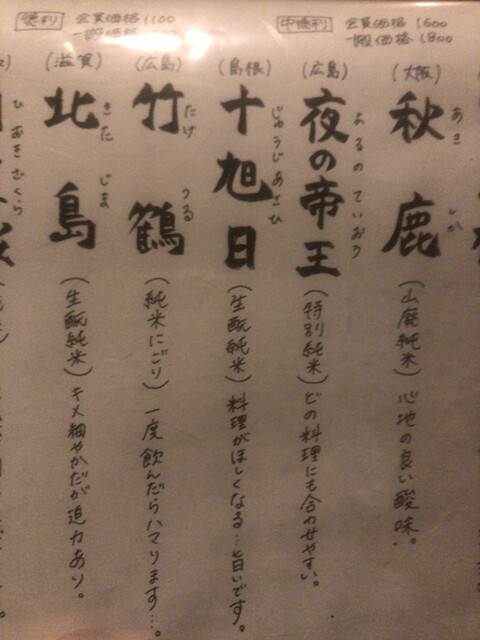 中徳利 会員価格 1600
一般価格 1800
徳利 会員価格 1100
一般価格
(大阪)
秋鹿
あき しか
(山廃純米) 心地の良い酸味。
(広島)
夜の帝王
よるのていおう
(特別純米) どの料理にも合わせやすい。
(島根)
十旭日
じゅうじあさひ
(生酛純米) 料理がほしくなる…旨いです。
(広島)
竹鶴
たけ つる
(純米にごり) 一度飲んだらハマります…。
(滋賀)
北島
きた じま
(生酛純米) キメ細やかだが迫力あり。
ひ おきざくら